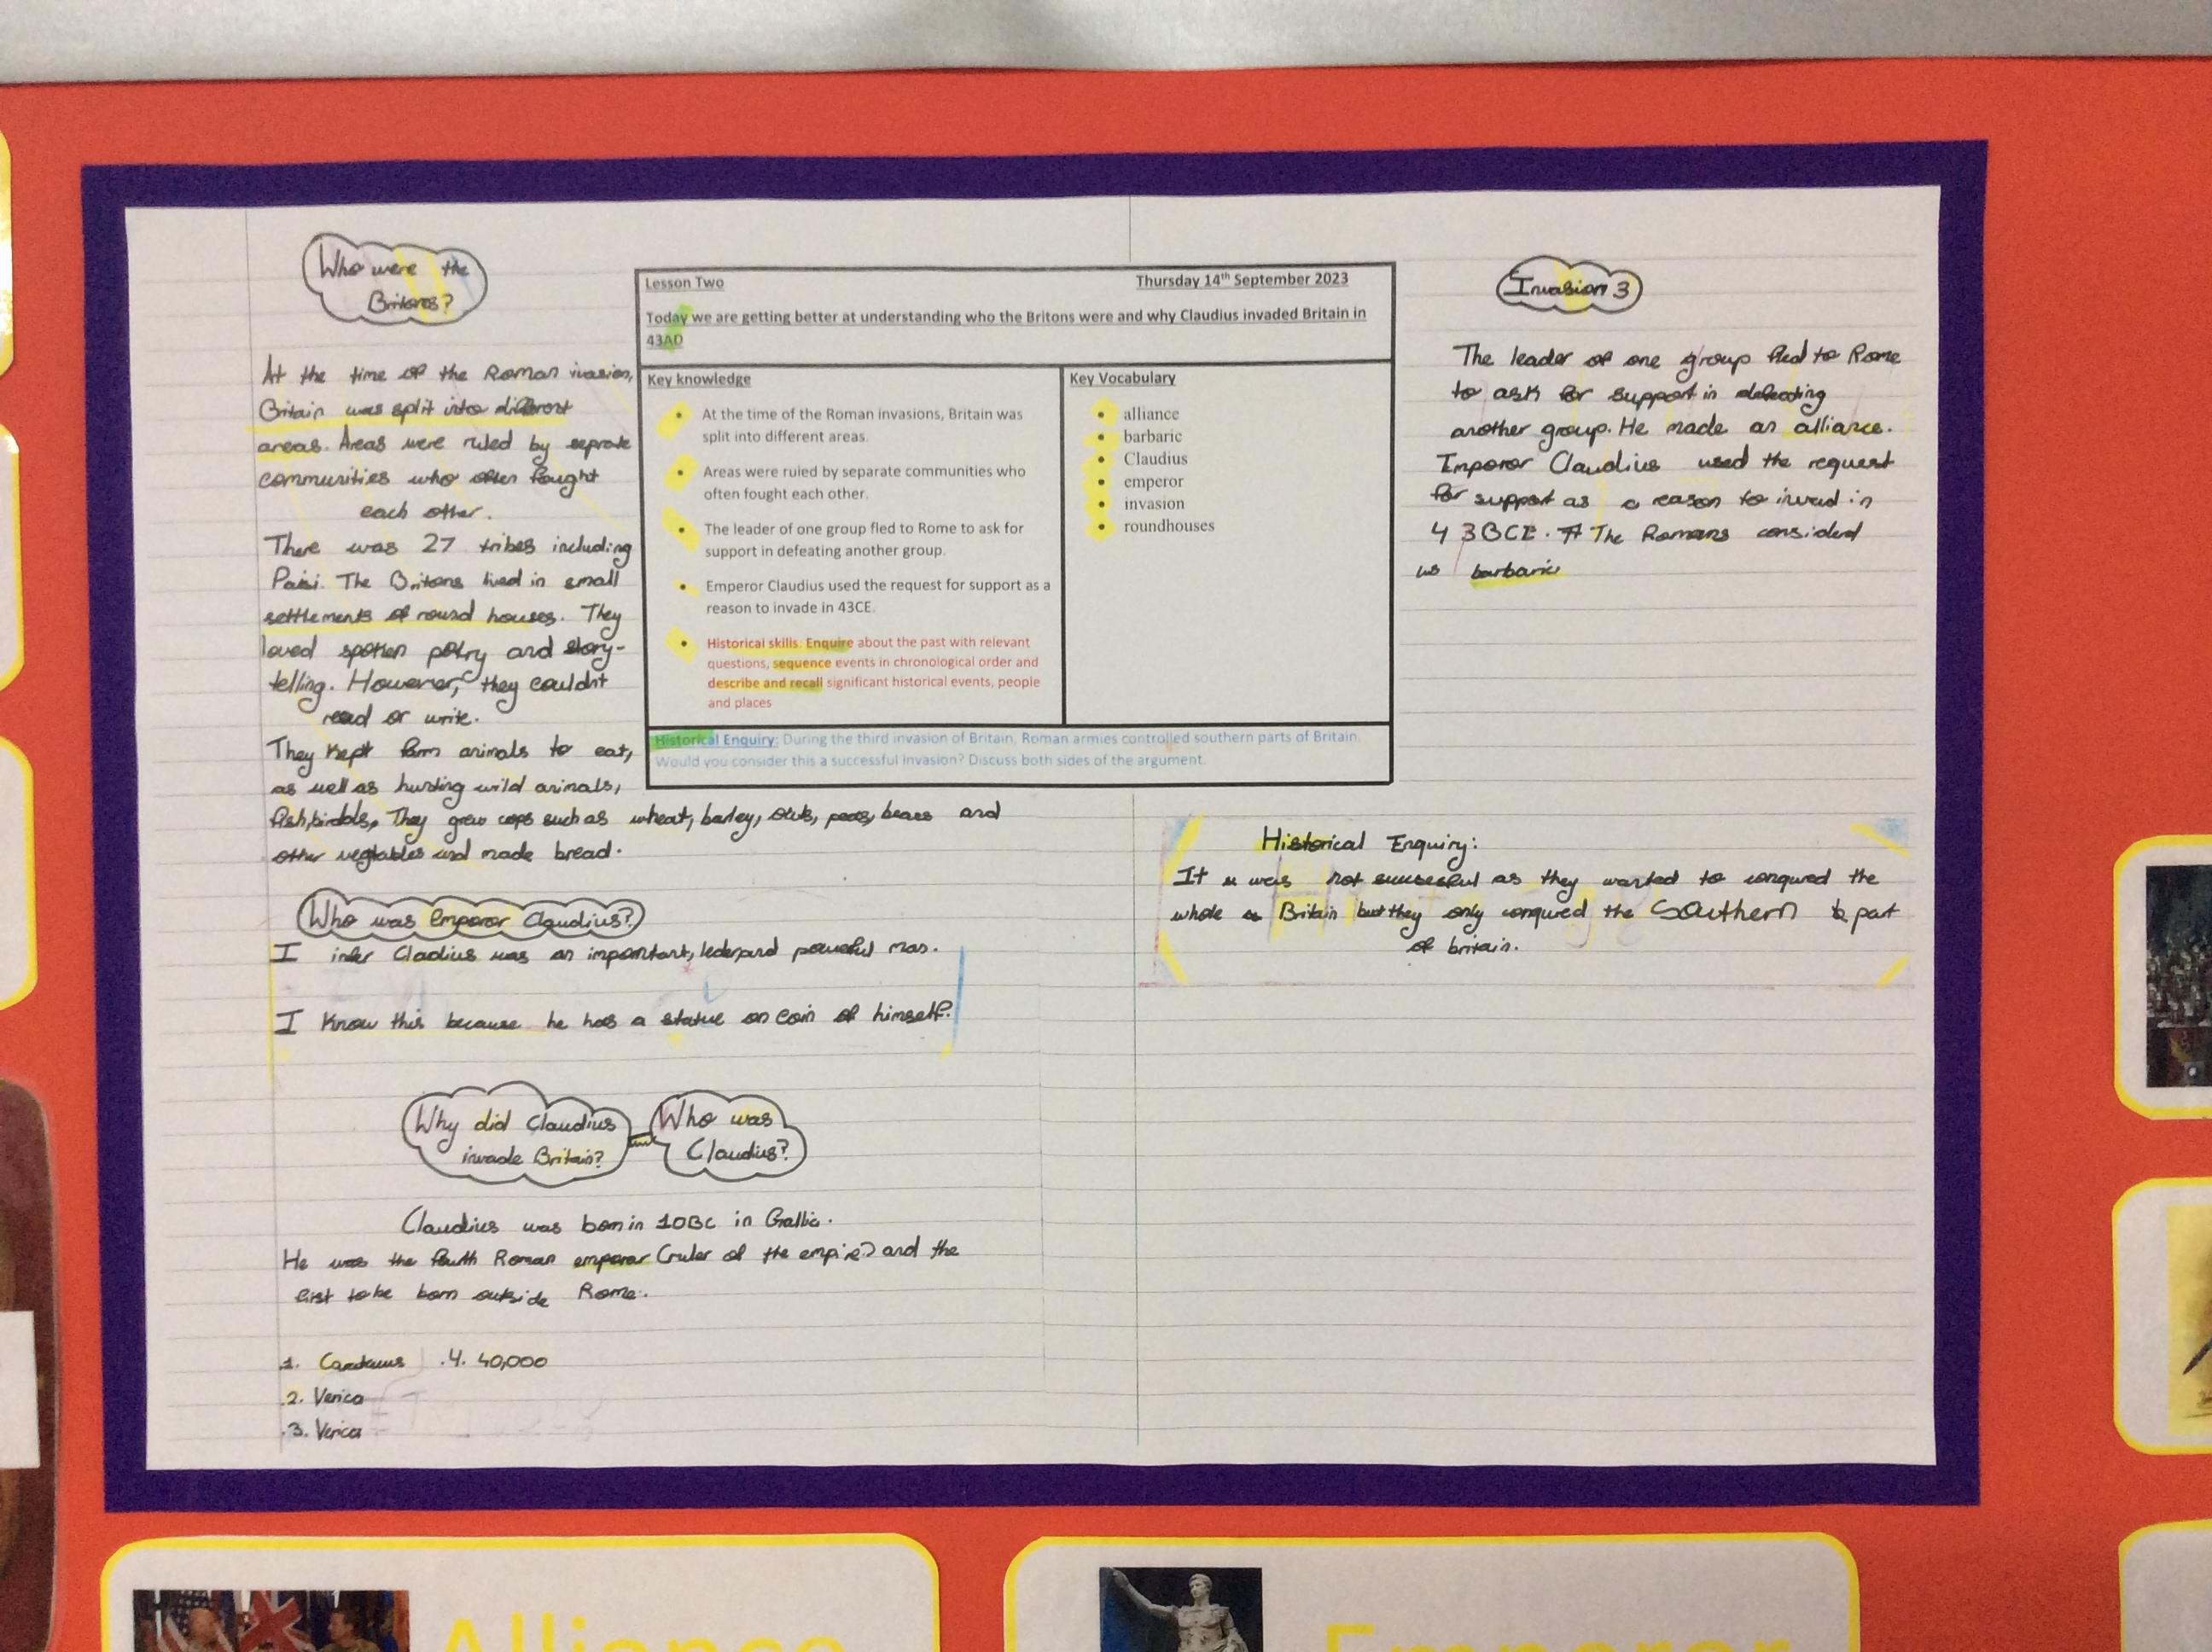 Who were the
Britons?
At the time of the Roman invasion,
Britain was split into different
areas. Areas were ruled by seprate
communities who often fought
each other.
There was 27 tribes including
Parisi. The Britons lived in small
settlements of round houses. They
loved spoken potry and story-
telling. However, they couldnt
read or write.
They kept farm animals to eat,
as well as hunting wild animals,
fish, birds. They grew cops such as wheat, barley, oats, peas, beans and
other vegtables and made bread.
Who was Emperor Claudius?
I infer Cladius was an important, and powerful man.
I know this because he has a statue on coin of himself.
Why did Claudius
invade Britain?
Who was
Claudius?
Claudius was born in 10BC in Gallic.
He was the fourth Roman emperor (ruler of the empire) and the
first to be born outside Rome.
1. 4. 40,000
2. Verica
3. Verica
Lesson Two Thursday 14th September 2023
Today we are getting better at understanding who the Britons were and why Claudius invaded Britain in
43AD
Key knowledge
• At the time of the Roman invasions, Britain was
split into different areas.
• Areas were ruled by separate communities who
often fought each other.
• The leader of one group fled to Rome to ask for
support in defeating another group.
• Emperor Claudius used the request for support as a
reason to invade in 43CE.
• Historical skills: Enquire about the past with relevant
questions, sequence events in chronological order and
describe and recall significant historical events, people
and places
Key Vocabulary
• alliance
• barbaric
• Claudius
• emperor
• invasion
• roundhouses
Historical Enquiry: During the third invasion of Britain, Roman armies controlled southern parts of Britain.
Would you consider this a successful invasion? Discuss both sides of the argument.
Invasion 3
The leader of one group fled to Rome
to ask for support in defeating
another group. He made an alliance.
Emperor Claudius used the request
for support as a reason to invad in
43BCE. The Romans considerd
us barbaric
Historical Enquiry:
It was not sucsesful as they wanted to conqured the
whole Britain but they only conqured the Southern part
of britain.
Alliance
Emperor